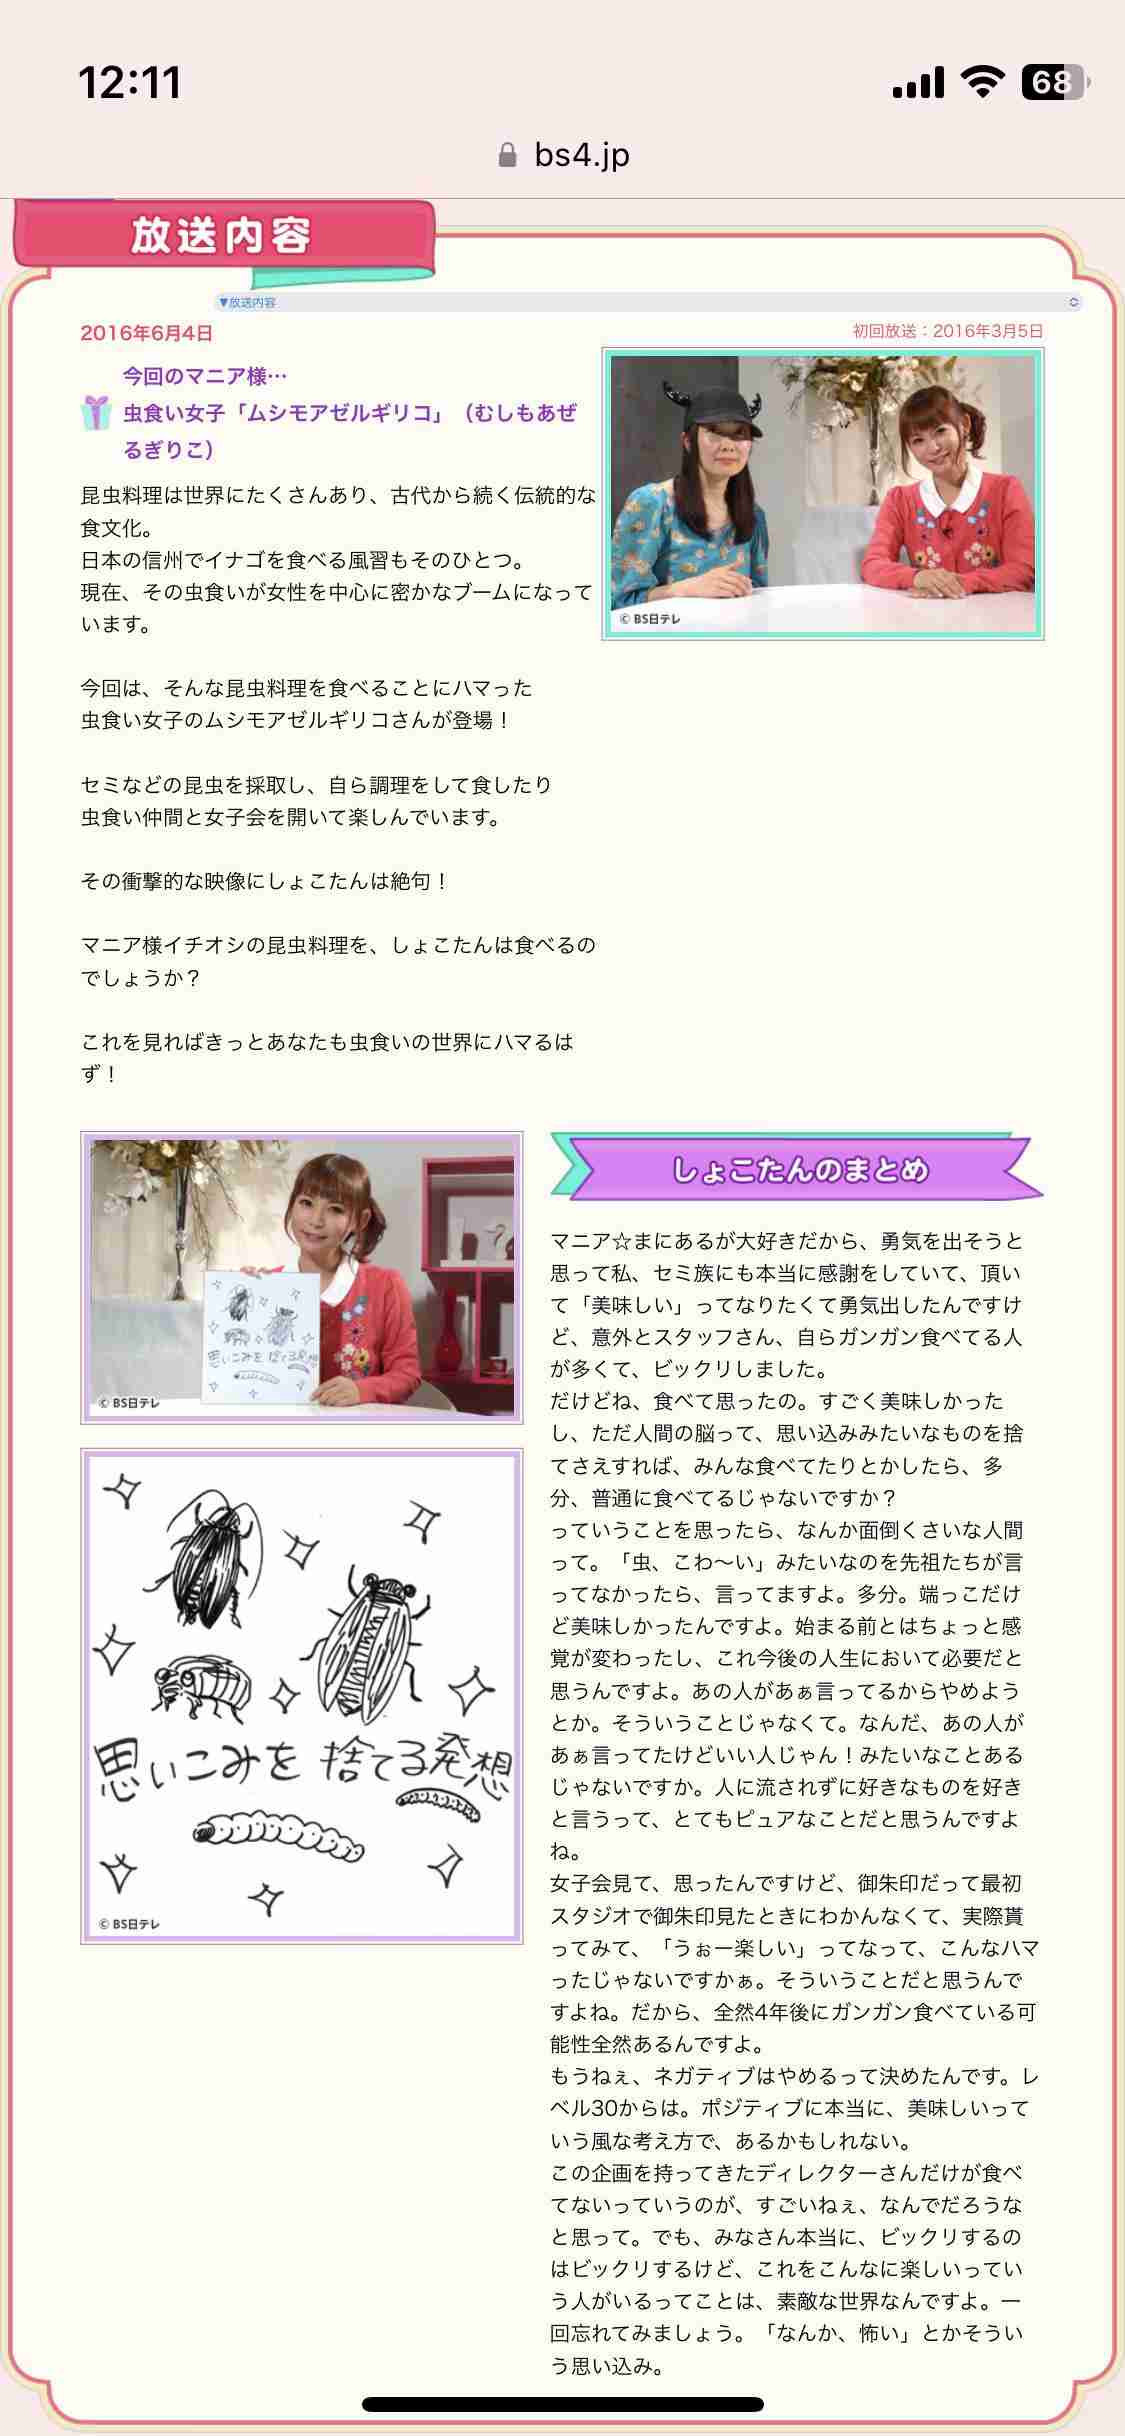 12:11
68
bs4.jp
放送内容
▼放送内容
2016年6月4日
初回放送：2016年3月5日
今回のマニア様…
虫食い女子「ムシモアゼルギリコ」（むしもあぜ
るぎりこ）
昆虫料理は世界にたくさんあり、古代から続く伝統的な
食文化。
日本の信州でイナゴを食べる風習もそのひとつ。
現在、その虫食いが女性を中心に密かなブームになって
います。
© BS日テレ
今回は、そんな昆虫料理を食べることにハマった
虫食い女子のムシモアゼルギリコさんが登場！
セミなどの昆虫を採取し、自ら調理をして食したり
虫食い仲間と女子会を開いて楽しんでいます。
その衝撃的な映像にしょこたんは絶句！
マニア様イチオシの昆虫料理を、しょこたんは食べるの
でしょうか？
これを見ればきっとあなたも虫食いの世界にハマるは
ず！
思いこみを捨てる発想
© BS日テレ
思いこみを 捨てる発想
© BS日テレ
しょこたんのまとめ
マニア☆まにあるが大好きだから、勇気を出そうと
思って私、セミ族にも本当に感謝をしていて、頂い
て「美味しい」ってなりたくて勇気出したんですけ
ど、意外とスタッフさん、自らガンガン食べてる人
が多くて、ビックリしました。
だけどね、食べて思ったの。すごく美味しかった
し、ただ人間の脳って、思い込みみたいなものを捨
てさえすれば、みんな食べてたりとかしたら、多
分、普通に食べてるじゃないですか？
っていうことを思ったら、なんか面倒くさいな人間
って。「虫、こわ〜い」みたいなのを先祖たちが言
ってなかったら、言ってますよ。多分。端っこだけ
ど美味しかったんですよ。始まる前とはちょっと感
覚が変わったし、これ今後の人生において必要だと
思うんですよ。あの人があぁ言ってるからやめよう
とか。そういうことじゃなくて。なんだ、あの人が
あぁ言ってたけどいい人じゃん！みたいなことある
じゃないですか。人に流されずに好きなものを好き
と言うって、とてもピュアなことだと思うんですよ
ね。
女子会見て、思ったんですけど、御朱印だって最初
スタジオで御朱印見たときにわかんなくて、実際貰
ってみて、「うぉー楽しい」ってなって、こんなハマ
ったじゃないですかぁ。そういうことだと思うんで
すよね。だから、全然4年後にガンガン食べている可
能性全然あるんですよ。
もうねぇ、ネガティブはやめるって決めたんです。レ
ベル30からは。ポジティブに本当に、美味しいって
いう風な考え方で、あるかもしれない。
この企画を持ってきたディレクターさんだけが食べ
てないっていうのが、すごいねぇ、なんでだろうな
と思って。でも、みなさん本当に、ビックリするの
はビックリするけど、これをこんなに楽しいってい
う人がいるってことは、素敵な世界なんですよ。一
回忘れてみましょう。「なんか、怖い」とかそうい
う思い込み。